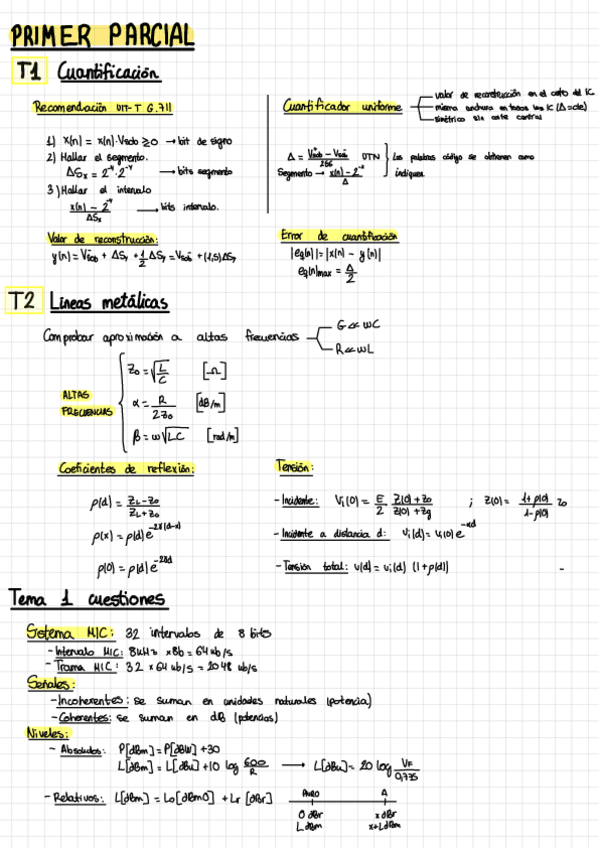 PRIMER PARCIAL
T1 Cuantificación
Recomendación UIT-T G.711
1) x(n) = x(n)·Vsob ≥ 0 → bit de signo
2) Hallar el segmento.
ΔSx = 2^-4 · 2^-4 → bits segmento
3) Hallar el intervalo
x(n) - 2^-4 / ΔSx → bits intervalo.
Valor de reconstrucción:
y(n) = Vsob + ΔSy + 1/2 ΔSy = Vsob + (1,5)ΔSy
Cuantificador uniforme
valor de reconstrucción en el centro del IC
misma anchura en todos los IC (Δ=cte)
simétrico sin corte central
Δ = / 256 UTN
Segmento → x(n) - 2^-4 / Δ
Las palabras código se obtienen como
indiquen
Error de cuantificación
|eq(n)| = |x(n) - y(n)|
eq(n)max = Δ/2
T2 Líneas metálicas
Comprobar aproximación a altas frecuencias
G << ωC
R << ωL
ALTAS FRECUENCIAS
Z0 = √(L/C) [Ω]
α = R / 2Z0 [dB/m]
β = ω√LC [rad/m]
Coeficientes de reflexión:
ρ(d) = ZL - Z0 / ZL + Z0
ρ(x) = ρ(d) e^-2γ(d-x)
ρ(0) = ρ(d) e^-2γd
Tensión:
- Incidente: Vi(0) = E/2 Z(0) + Z0 / Z(0) + Zg ; Z(0) = 1 + ρ(0) / 1 - ρ(0) Z0
- Incidente a distancia d: Vi(d) = Vi(0) e^-αd
- Tensión total: V(d) = Vi(d) (1 + ρ(d))
Tema 1 cuestiones
Sistema MIC: 32 intervalos de 8 bits
- Intervalo MIC: 8kHz × 8b = 64 kb/s
- Trama MIC: 32 × 64 kb/s = 2048 kb/s
Señales:
- Incoherentes: se suman en unidades naturales (potencia)
- Coherentes: se suman en dB (potencias)
Niveles:
- Absolutos: P[dBm] = P[dBW] + 30
L[dBm] = L[dBu] + 10 log 600/R → L[dBu] = 20 log VF/0,775
- Relativos: L[dBm] = Lo[dBm0] + Lr [dBr]
PNR0 A
0 dBr x dBr
L dBm x+L dBm